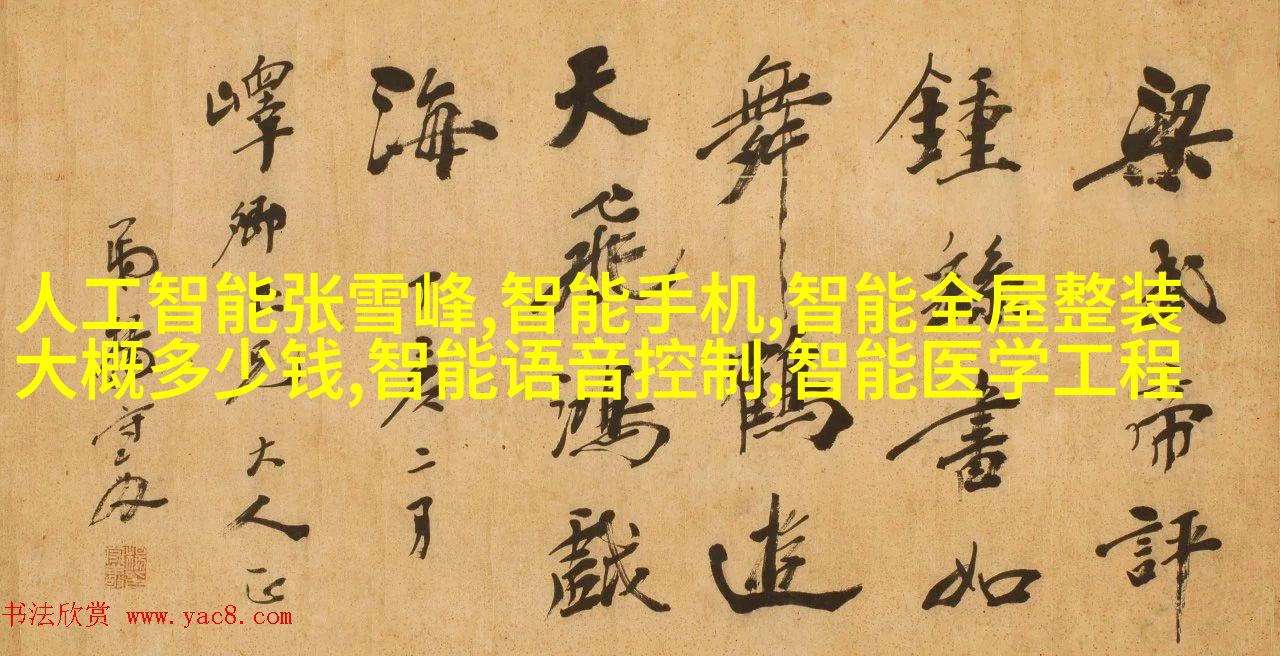 梁武帝評
鍾繇書如
舞鶴遊
天飛鴻戲
海
亥二月
嶧卿大人正
守敬
人工智能张雪峰,智能手机,智能全屋整装
大概多少钱,智能语音控制,智能医学工程
书法欣赏 www.yac8.com